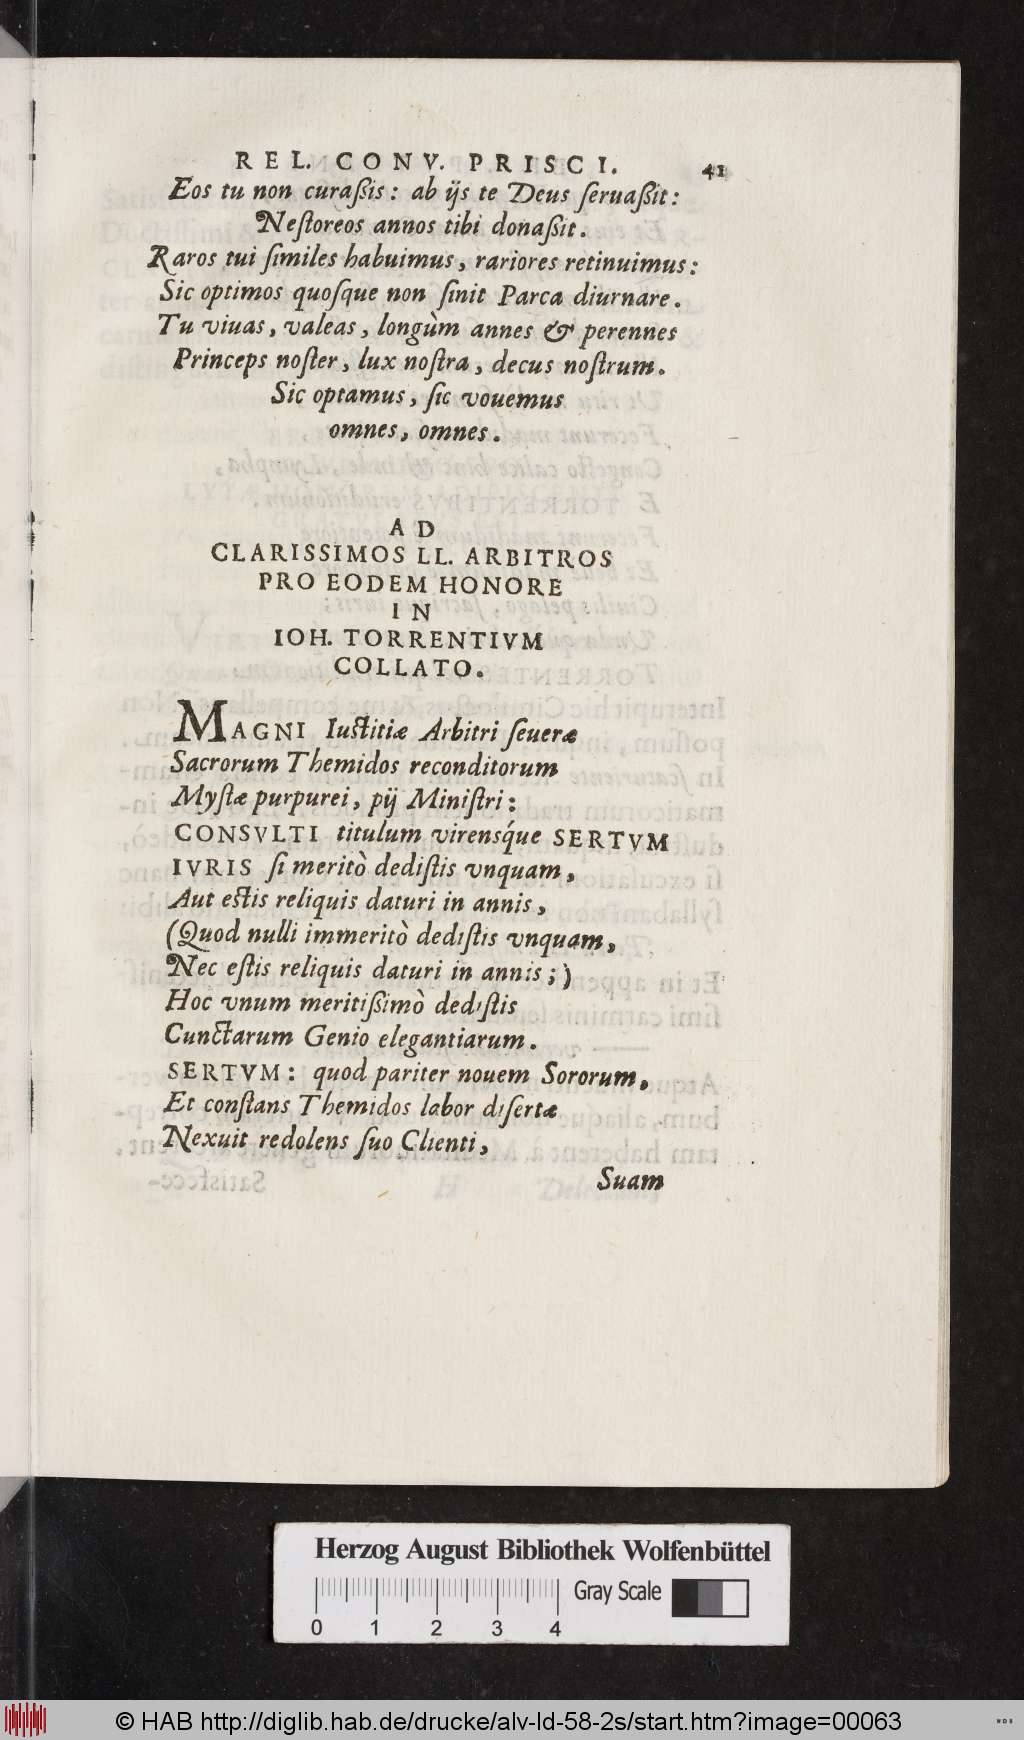 REL. CONV. PRISCI. 41
Eos tu non curaßis: ab ijs te Deus ſeruaßit:
Neſtoreos annos tibi donaßit.
Raros tui ſimiles habuimus, rariores retinuimus:
Sic optimos quoſque non ſinit Parca diurnare.
Tu viuas, valeas, longùm annes & perennes
Princeps noſter, lux noſtra, decus noſtrum.
Sic optamus, ſic vouemus
omnes, omnes.
AD
CLARISSIMOS LL. ARBITROS
PRO EODEM HONORE
IN
IOH. TORRENTIVM
COLLATO.
MAGNI Iuſtitiæ Arbitri ſeueræ
Sacrorum Themidos reconditorum
Myſtæ purpurei, pij Miniſtri:
CONSVLTI titulum virensq́ue SERTVM
IVRIS ſi meritò dediſtis vnquam,
Aut eſtis reliquis daturi in annis,
(Quod nulli immeritò dediſtis vnquam,
Nec eſtis reliquis daturi in annis;)
Hoc vnum meritißimò dediſtis
Cunctarum Genio elegantiarum.
SERTVM: quod pariter nouem Sororum,
Et conſtans Themidos labor diſertæ
Nexuit redolens ſuo Clienti,
Suam
Herzog August Bibliothek Wolfenbüttel
Gray Scale
0 1 2 3 4
© HAB http://diglib.hab.de/drucke/alv-ld-58-2s/start.htm?image=00063